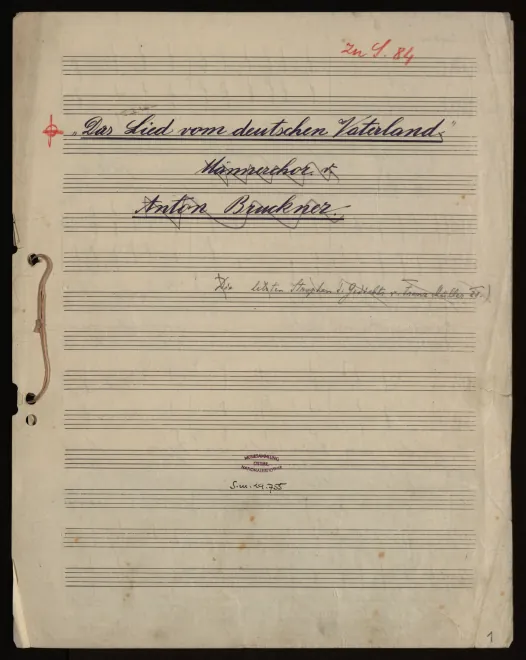 zu S. 84
„Das Lied vom deutschen Vaterland"
Männerchor v.
Anton Bruckner.
Die letzten Strophen d. Gedichts v.
MUSIKSAMMLUNG
ÖSTERR.
NATIONALBIBLIOTHEK
S.m. 29.755
1